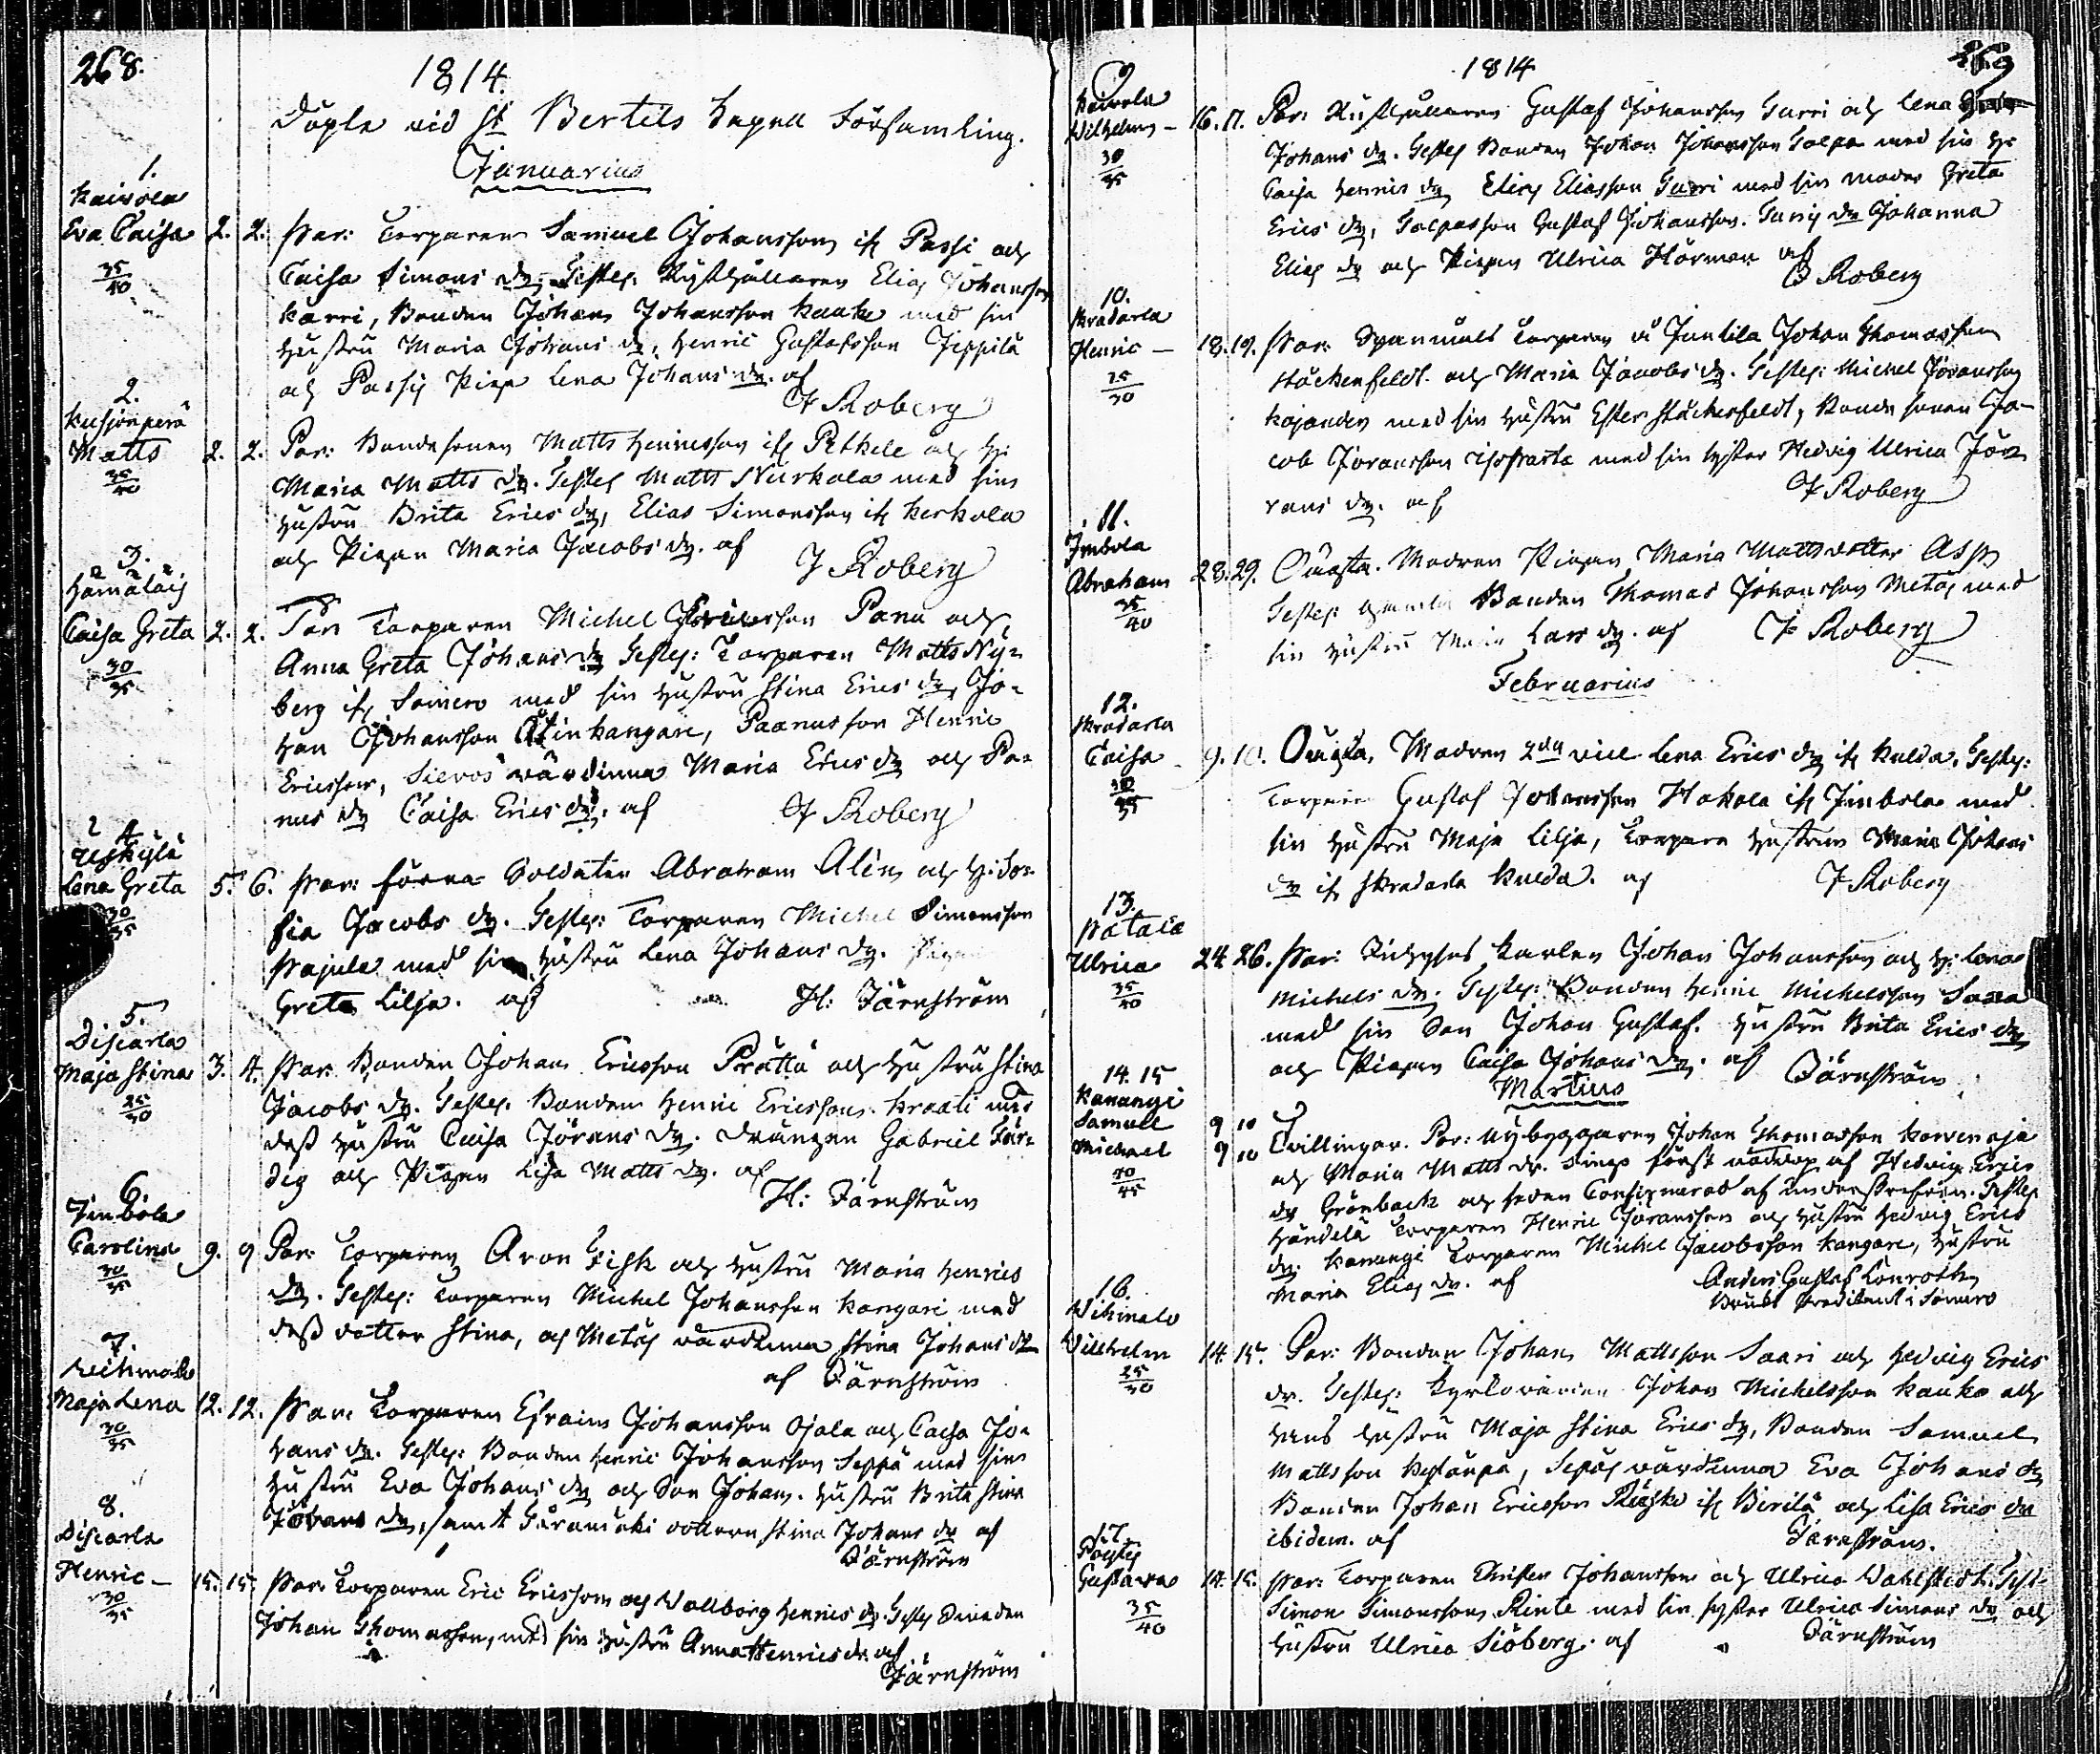 268.
1814.
Döpte vid St Bertils Kapell Församling.
Januarius
1.
Kaivola
Eva Caisa 2. 2. Par: Torparen Samuel Johansson ifr Passi och
35/40
Caisa Simons dr. Testes: Rusthållaren Elias Johansson
Karri, Bonden Johan Johansson Kauko med sin
hustru Maria Johans dr, Henric Gustafsson Jeppilä
och Passis Pigan Lena Johans dr. af
J Roberg
2.
Kusjonperä
Matts 2. 2. Par: Bondesonen Matts Henricsson ifr Pethele och H:
35/40
Maria Matts dr. Testes Matts Nurkala med sin
hustru Brita Erics dr, Elias Simonsson ifr Kerkola
och Pigan Maria Jacobs dr. af
J Roberg
3.
Hämäläis
Caisa Greta 2. 2. Par: Torparen Michel Panu och
30/35
Anna Greta Johans dr Testes: Torparen Matts Ny-
berg ifr Somero med sin hustru Stina Erics dr, Jo-
han Johansson kangare, Paanus son Henric
Ericsson, Sieros värdinna Maria Erics dr och Pa-
nus dr Caisa Erics dr. af
J Roberg
4
Uskylä
Lena Greta 5. 6. Par: förra Soldaten Abraham Alén och H: So-
30/35
fia Jacobs dr. Testes: Torparen Michel Simonsson
Pajula med sin hustru Lena Johans dr. Pigan
Greta Lilja. af
H: Järnström
5.
Discarla
Maja Stina 3. 4. Par: Bonden Johan Ericsson Prättä och hustru Stina
25/30
Jacobs dr. Testes. Bonden Henric Ericsson Kraati med
dess hustru Caisa Jörans dr. Drängen Gabriel Fär-
dig och Pigan Lisa Matts dr. af
H: Järnström
6
Jimböle
Carolina 9. 9 Par: Torparen Aron Fisk och hustru Maria Henrics
30/35
dr. Testes: Torparen Michel Johansson Kangari med
dess dotter Stina, och Metäs värdinna Stina Johans dr
af Järnström
7.
Maja Lena 12. 12. Par: Torparen Efraim Johansson Ojala och Caisa Jo-
30/35
hans dr. Testes: Bonden Henric Johansson Seppä med sin
hustru Eva Johans dr och Son Johan. hustru Brita Stina
Johans dr, samt dottern Stina Johans dr af
Järnström
8.
Discarla
Henric – 15. 15. Par: Torparen Eric Ericsson och Wallborg Henrics dr. Testes
30/35
Johan Thomasson, med sin hustru Anna Henrics dr. af
Järnström
269
1814
9
Kaivola
Wilhelm – 16. 17. Par: Rusthållaren Gustaf Johansson Garri och Lena
30/35
Johans dr. Testes Bonden Johan Johansson Salpa med sin H:
Caisa Henrics dr Elias Eliasson Garri med sin moder Greta
Erics dr, Salpas son Gustaf Johansson. Garris dr Johanna
Elias dr och Pigan Ulrica Hörman af
J Roberg
10.
Skradarla
Henric – 18. 19. Par: Spanmåls Torparen å Juntila Johan Thomasson
25/30
Stäckenfeldt och Maria Jacobs dr. Testes: Michel Jöransson
Kajander med sin hustru Ester Stäckenfeldt, Bonde sonen Ja-
cob Jöransson Isoprasta med sin syster Hedvig Ulrica Jö-
rans dr. af
J Roberg
11.
Jmbola
Abraham 28. 29. Oäkta. Modren Pigan Maria Mattsdotter Asp
35/40
Testes gamla Bonden Thomas Johansson Metäs med
sin hustru Maria Lars dr. af J Roberg
Februarius
12.
Skradarla
Caisa 9. 10. Oäkta, Modren 2dra vice Lena Erics dr ifr Kulda. Testes:
30/35
Torparen Gustaf Johansson Hakala ifr Jimbola med
sin hustru Maja Lilja, Torpare hustrun Maria Johans
dr ifr Skradarla Kulda. af
J Roberg
13.
Patala
Ulrica 24. 26. Par: Inhyses Karlen Johan Johansson och H: Lena
35/40
Michels dr. Testes: Bonden Henric Michelsson Saxa
med sin Son Johan Gustaf. hustru Brita Erics dr
och Pigan Caisa Johans dr. af
Järnström
Martius
14. 15
Kanungi
Samuel 9 10
Michael 9 10 Tvillingar. Par: Nybyggaren Johan Thomasson Korvenoja
40/45
och Maria Matts dr. Dings först nöddop af Hedvig Erics
dr Grönback och sedan Consignerad af underskrefven. Testes
Händelä Torparen Henric Jöransson och hustru Hedvig Erics
dr. Kanungi Torparen Michel Jacobsson Kangare, hustru
Maria Elias dr. af
Anders Gustaf Lönroth
Prædikant i Somero
16.
Vilhelm 14. 15. Par: Bonden Johan Mattsson Saari och Hedvig Erics
25/30
dr. Testes: Kyrkovärden Johan Michelsson Kauko och
hans hustru Maja Stina Erics dr, Bonden Samuel
Mattsson Kesänpä, Sepäs värdinna Eva Johans dr
Bonden Johan Ericsson Riiske ifr Pirilä och Lisa Erics dr
ibidem. af
Järnström.
17.
Poytis
Gustava 14. 15. Par: Torparen Christer Johansson och Ulrica Wahlstedt. Test:
35/40
Simon Simonsson Rinte med sin syster Ulrica Simons dr och
hustru Ulrica Siöberg. af
Järnström